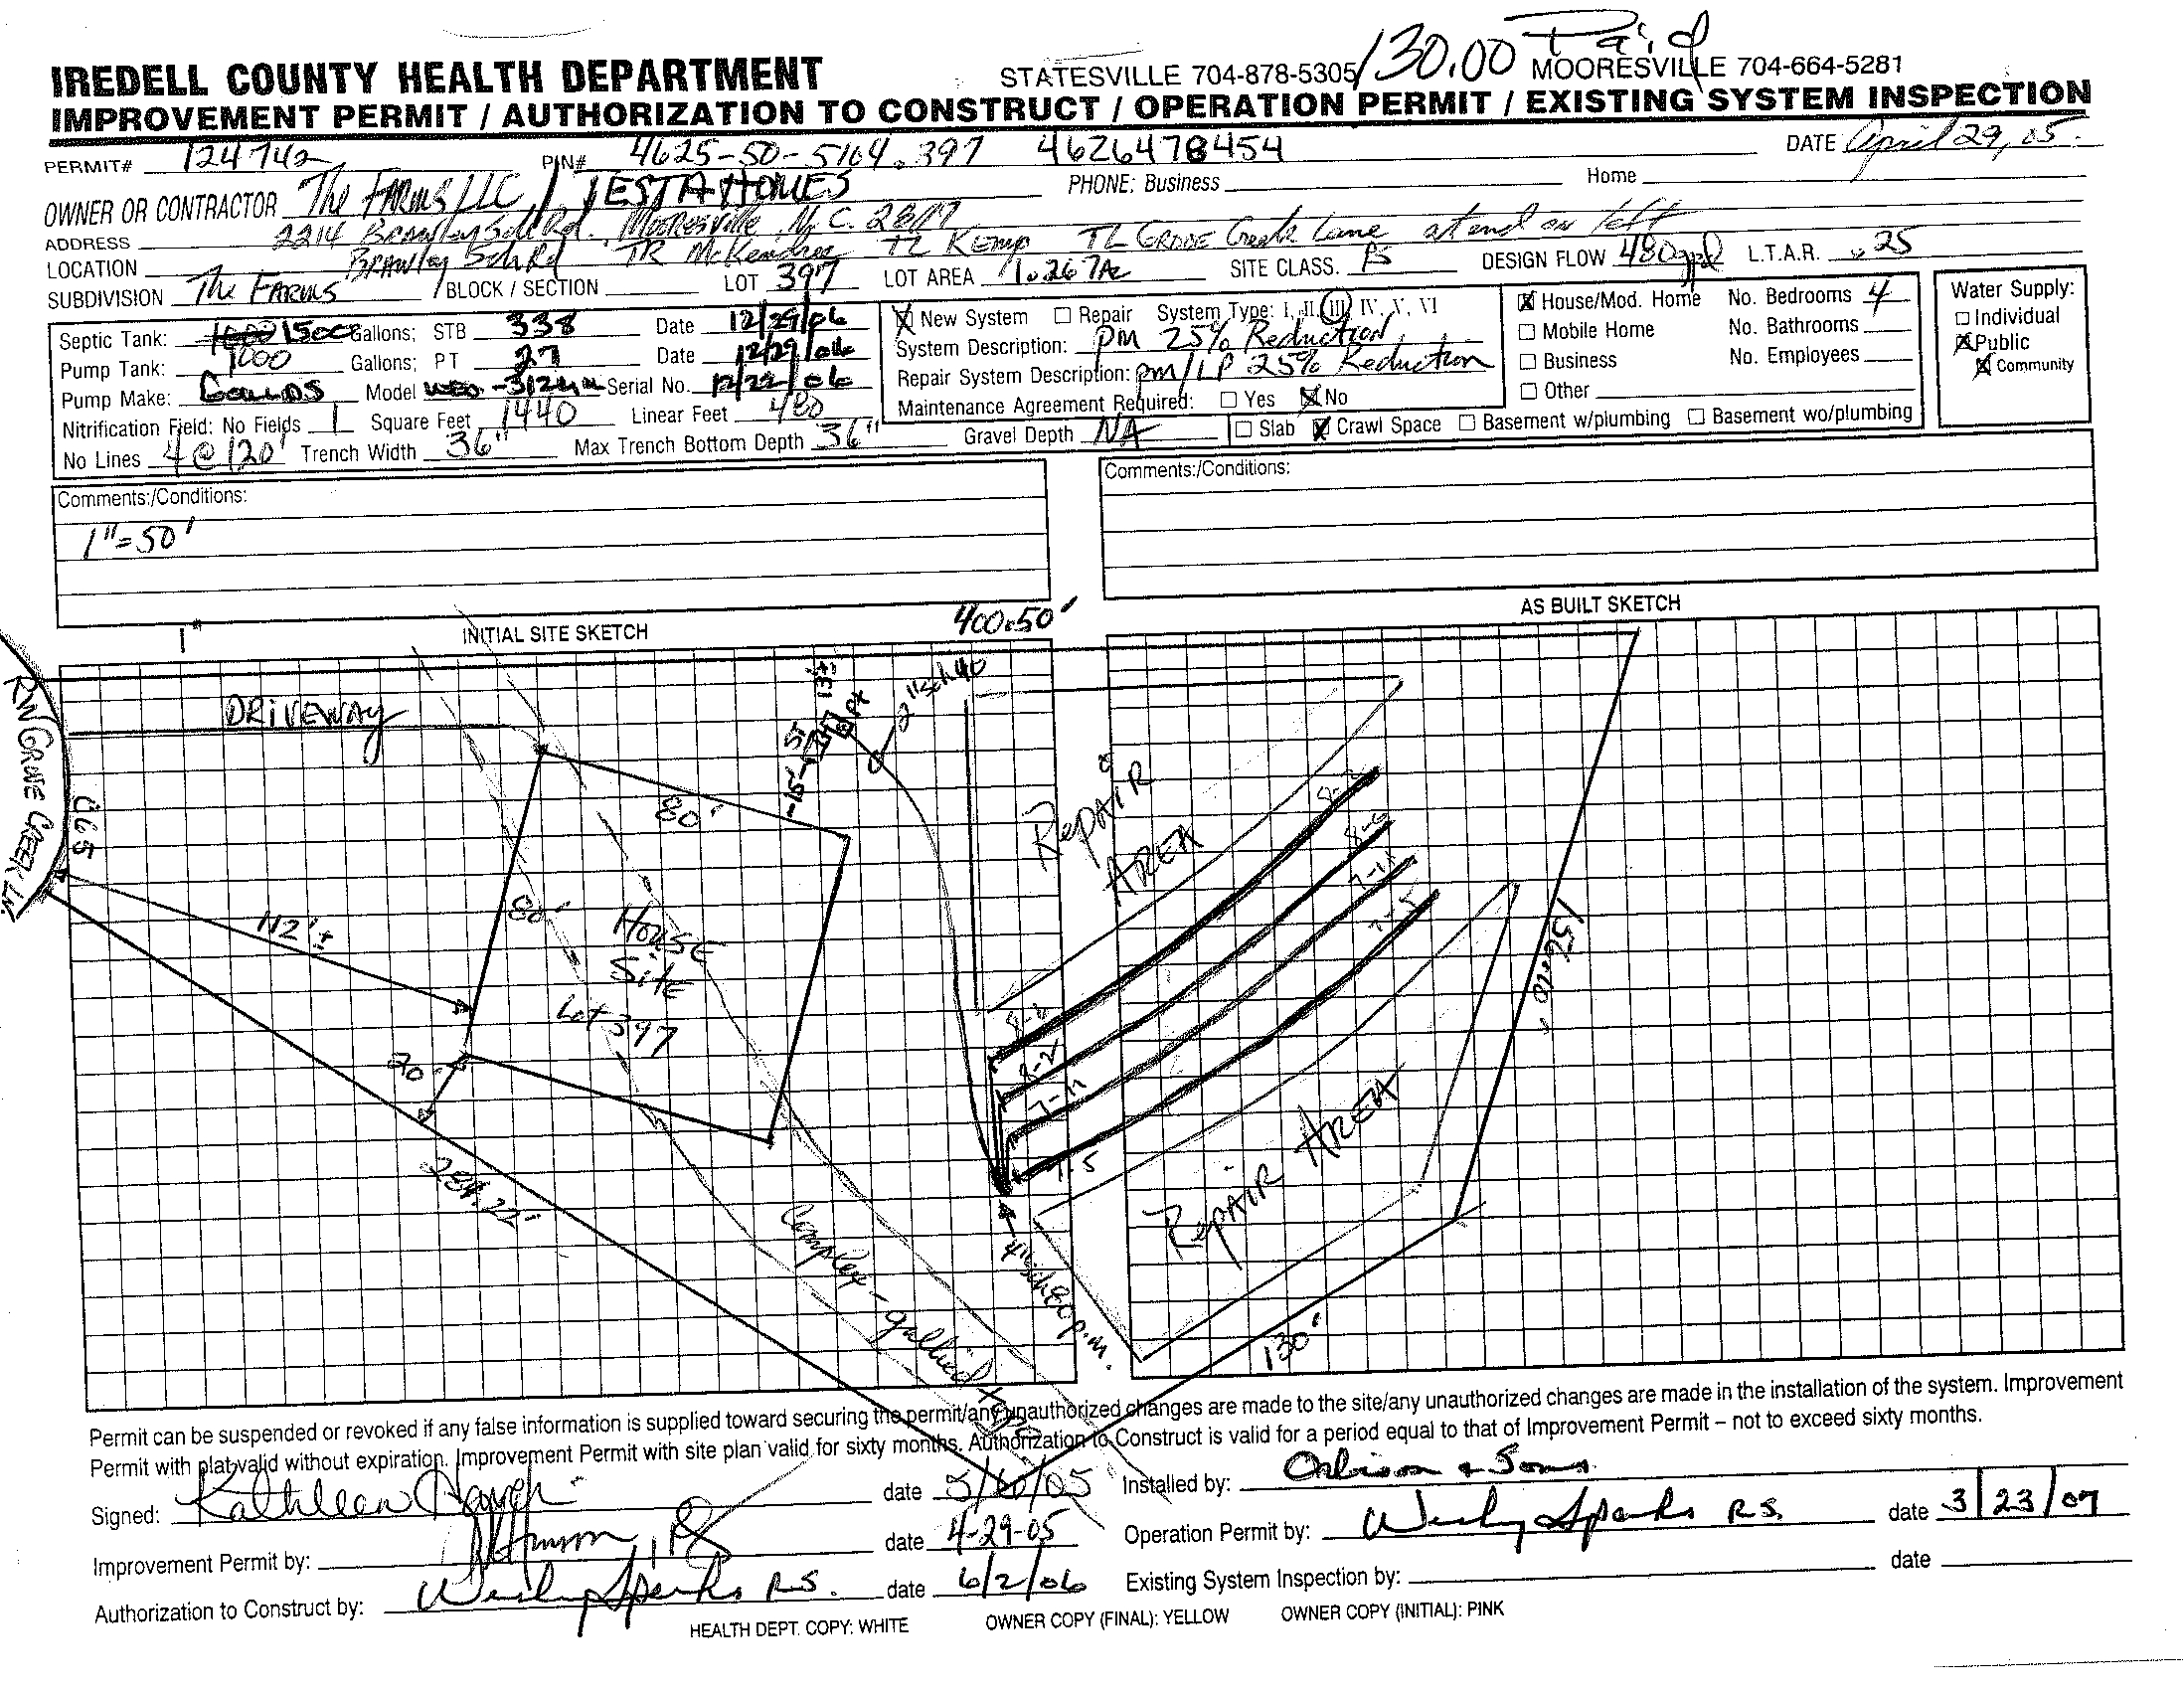 130.00 Paid
IREDELL COUNTY HEALTH DEPARTMENT STATESVILLE 704-878-5305 MOORESVILLE 704-664-5281
IMPROVEMENT PERMIT / AUTHORIZATION TO CONSTRUCT / OPERATION PERMIT / EXISTING SYSTEM INSPECTION
PERMIT# 124742 PIN# 4625-50-5164.397 4626478454 DATE April 29, 05.
OWNER OR CONTRACTOR The FARMS LLC / TESTA HOMES PHONE: Business Home
ADDRESS 2214 Brawley Sch Rd. Mooresville, N.C. 28117
LOCATION Brawley Sch Rd TR McKendree TL Kemp TL GROVE Creek Lane at end on left
SUBDIVISION The FARMS BLOCK / SECTION LOT 397 LOT AREA 1.267Ac SITE CLASS. PS DESIGN FLOW 480gpd L.T.A.R. .25
Septic Tank: 1000 1500 Gallons; STB 338 Date 12/29/06
Pump Tank: 1000 Gallons; PT 27 Date 12/29/06
Pump Make: Goulds Model Serial No. 12/22/06
Nitrification Field: No Fields 1 Square Feet 1440 Linear Feet 480
No Lines 4@120' Trench Width 36" Max Trench Bottom Depth 36" Gravel Depth NA
New System Repair System Type: I, II, III, IV, V, VI
System Description: PM 25% Reduction
Repair System Description: pm/LP 25% Reduction
Maintenance Agreement Required: Yes No
House/Mod. Home No. Bedrooms 4
Mobile Home No. Bathrooms
Business No. Employees
Other
Slab Crawl Space Basement w/plumbing Basement wo/plumbing
Water Supply:
Individual
Public
Community
Comments:/Conditions:
1"=50'
Comments:/Conditions:
1"
INITIAL SITE SKETCH
400.50'
AS BUILT SKETCH
RW GROVE CREEK LN.
C65
DRIVEWAY
13ft
PT
5'
-15'-
2"sch40
80'
80'
112'±
House
Site
Lot 397
20'
284.22'
Complex-gullied
Repair
AREA
8-2
8-2
7-11
7-5
8-2
7-11
7-5
156.10'
Repair AREA
4"sch80 p.m.
130'
Permit can be suspended or revoked if any false information is supplied toward securing the permit/any unauthorized changes are made to the site/any unauthorized changes are made in the installation of the system. Improvement
Permit with plat valid without expiration. Improvement Permit with site plan valid for sixty months. Authorization to Construct is valid for a period equal to that of Improvement Permit – not to exceed sixty months.
Signed: Kathleen date 5/10/05 Installed by: Orbison & Sons
Improvement Permit by: date 4-29-05 Operation Permit by: Wesley Sparks R.S. date 3/23/07
Authorization to Construct by: Wesley Sparks R.S. date 6/2/06 Existing System Inspection by: date
HEALTH DEPT. COPY: WHITE OWNER COPY (FINAL): YELLOW OWNER COPY (INITIAL): PINK